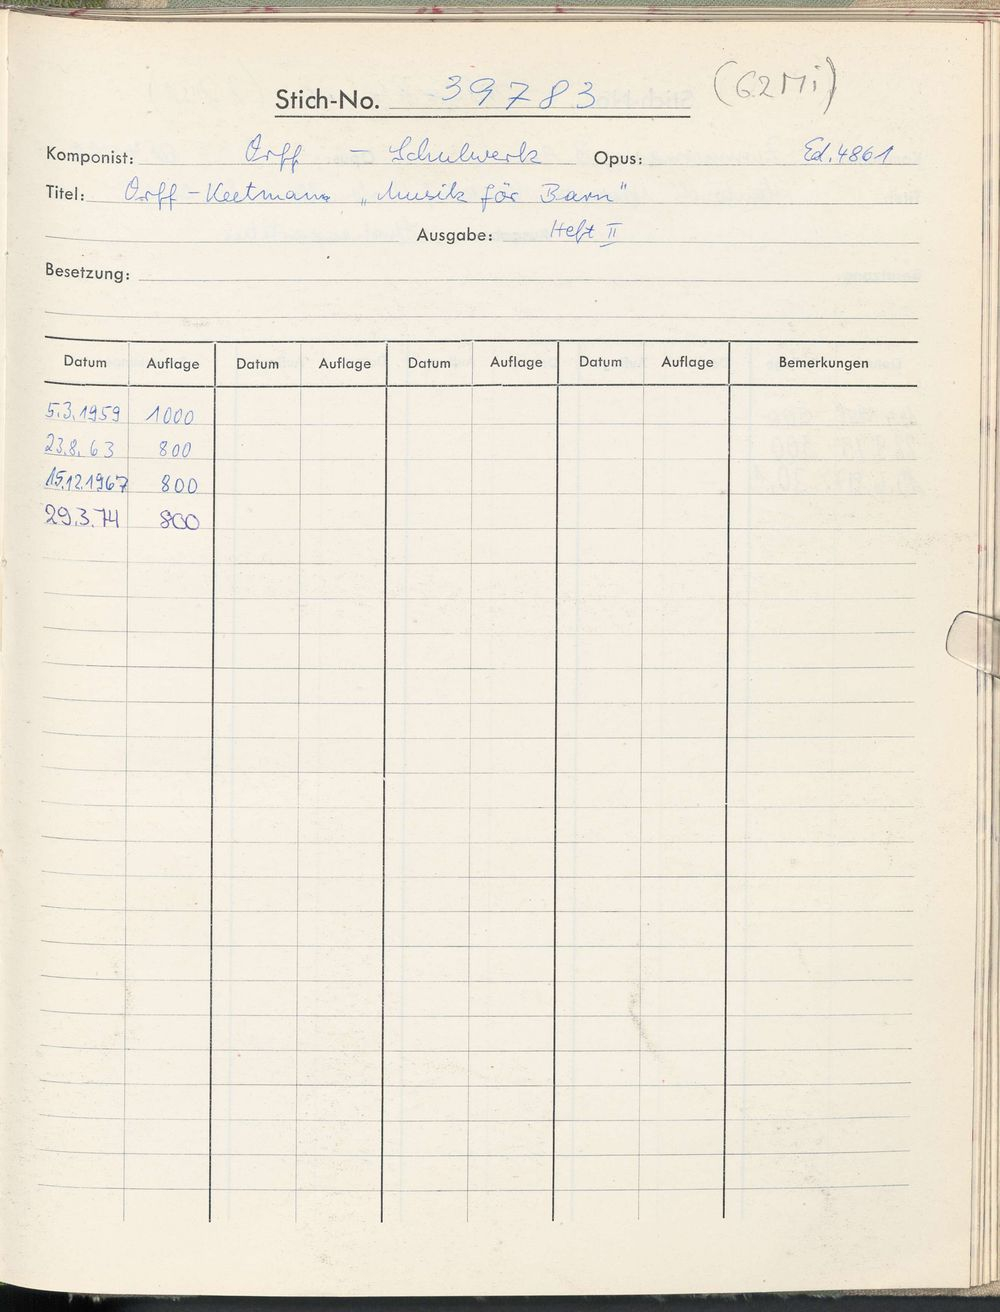 Stich-No. 39783 (62 Mi)
Komponist: Orff - Schulwerk Opus: Ed. 4861
Titel: Orff - Keetmann „Musik för Barn"
Ausgabe: Heft II
Besetzung:
Datum Auflage Datum Auflage Datum Auflage Datum Auflage Bemerkungen
5.3.1959 1000
23.8.63 800
15.12.1967 800
29.3.74 800